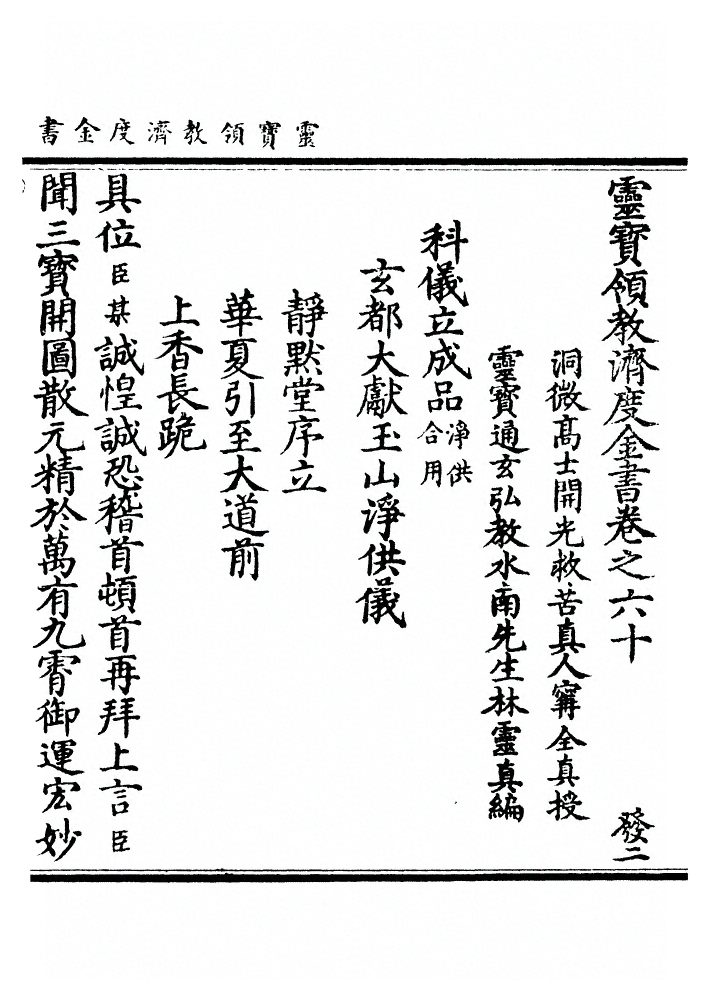 靈寶領教濟度金書
靈寶領教濟度金書卷之六十 發二
洞微高士開光救苦真人寗全真授
靈寶通玄弘教水南先生林靈真編
科儀立成品 淨供合用
玄都大獻玉山淨供儀
靜默堂序立
華夏引至大道前
上香長跪
具位臣某誠惶誠恐稽首頓首再拜上言臣
聞三寶開圖散元精於萬有九霄御運宏妙